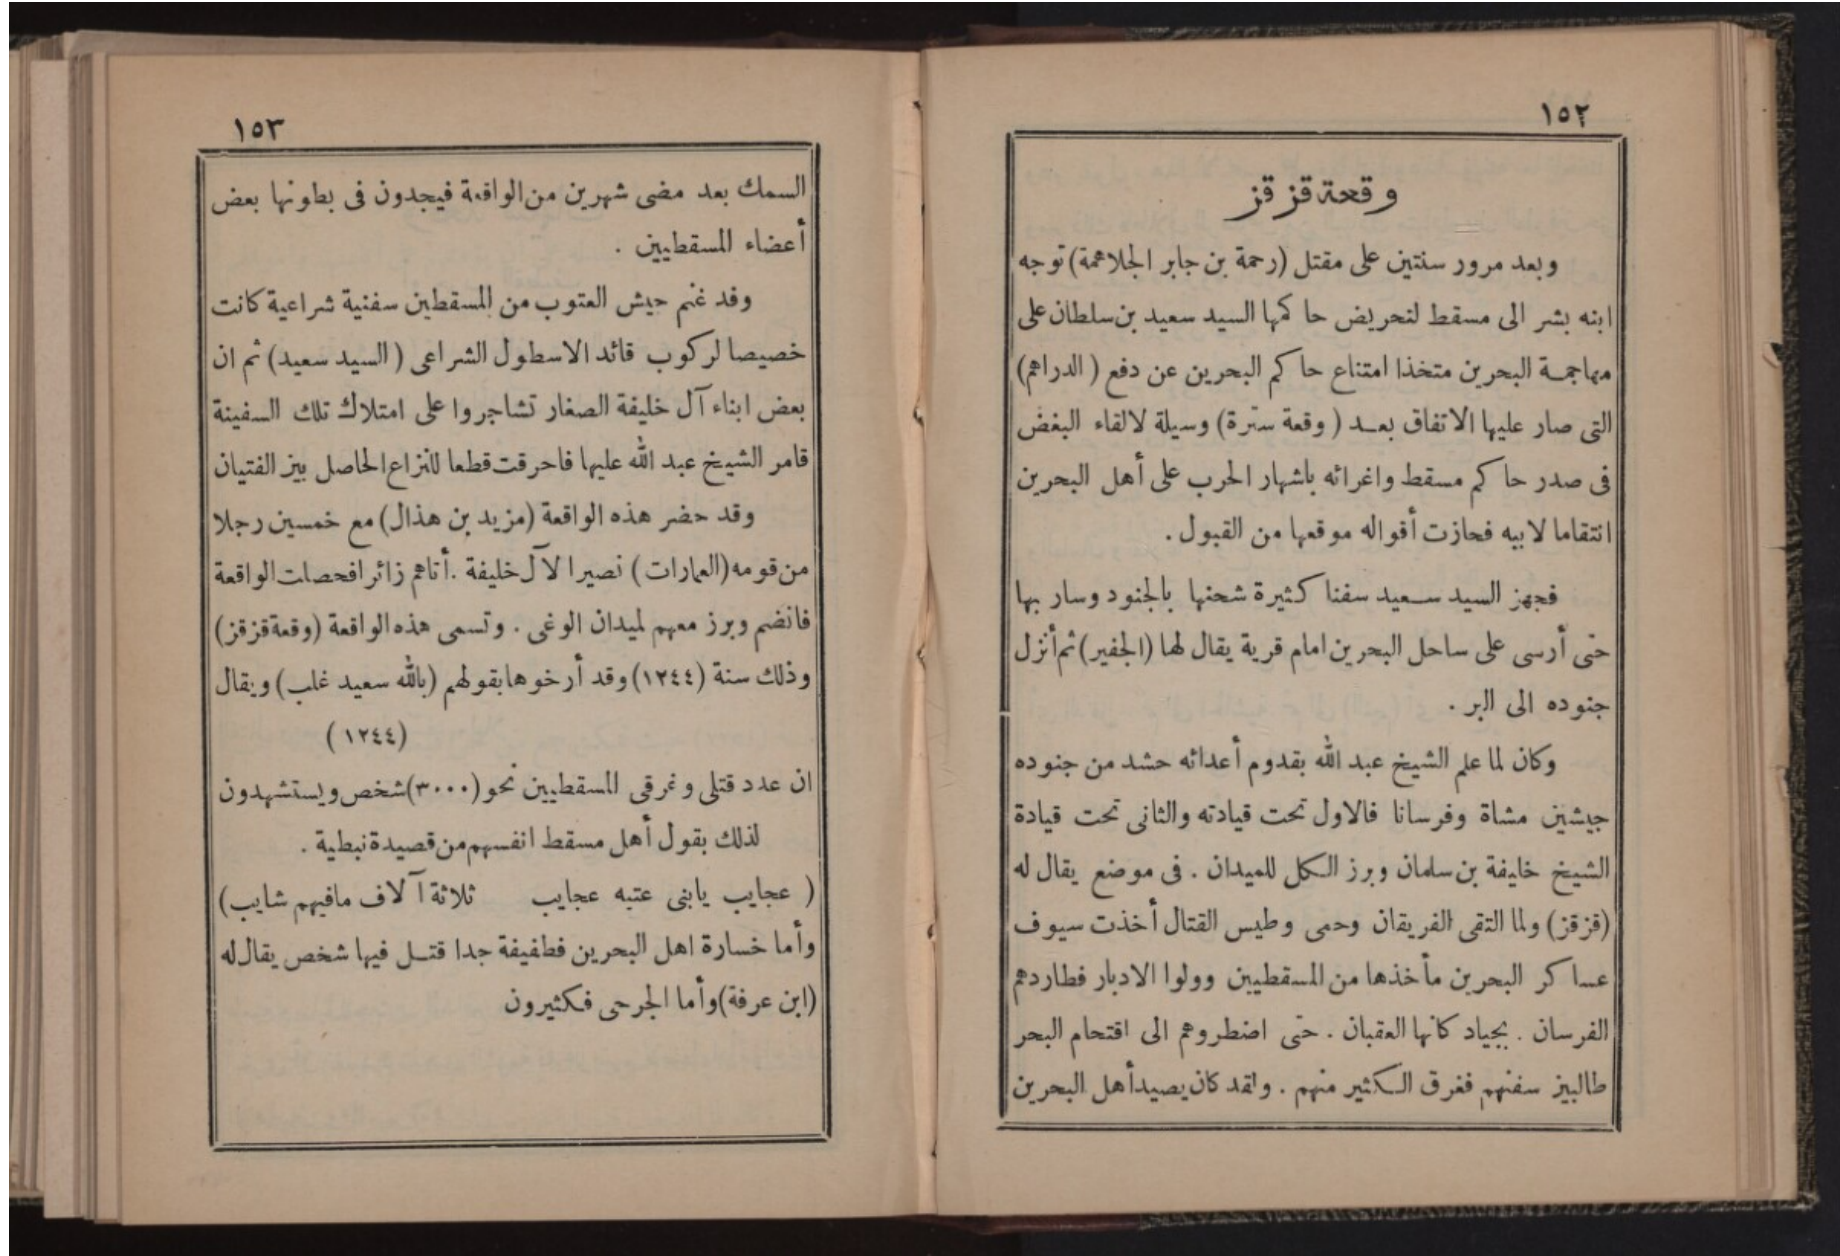 ١٥٢
وقعة قزقز
وبعد مرور سنتين على مقتل (رحمة بن جابر الجلاهمة) توجه
ابنه بشر الى مسقط لتحريض حاكمها السيد سعيد بن سلطان على
مهاجمة البحرين متخذا امتناع حاكم البحرين عن دفع (الدراهم)
التى صار عليها الاتفاق بعد (وقعة سترة) وسيلة لالقاء البغض
فى صدر حاكم مسقط واغرائه باشهار الحرب على أهل البحرين
انتقاما لابيه فحازت أقواله موقعها من القبول .
فجهز السيد سعيد سفنا كثيرة شحنها بالجنود وسار بها
حتى أرسى على ساحل البحرين امام قرية يقال لها (الجفير) ثم أنزل
جنوده الى البر .
وكان لما علم الشيخ عبد الله بقدوم أعدائه حشد من جنوده
جيشين مشاة وفرسانا فالاول تحت قيادته والثانى تحت قيادة
الشيخ خليفة بن سلمان وبرز الكل للميدان . فى موضع يقال له
(قزقز) ولما التقى الفريقان وحمى وطيس القتال أخذت سيوف
عساكر البحرين مأخذها من المسقطيين وولوا الادبار فطاردهم
الفرسان . بجياد كانها العقبان . حتى اضطروهم الى اقتحام البحر
طالبين سفنهم فغرق الكثير منهم . ولقد كان يصيد أهل البحرين
١٥٣
السمك بعد مضى شهرين من الواقعة فيجدون فى بطونها بعض
أعضاء المسقطيين .
وقد غنم جيش العتوب من المسقطين سفنية شراعية كانت
خصيصا لركوب قائد الاسطول الشراعى (السيد سعيد) ثم ان
بعض ابناء آل خليفة الصغار تشاجروا على امتلاك تلك السفينة
قامر الشيخ عبد الله عليها فاحرقت قطعا للنزاع الحاصل بين الفتيان
وقد حضر هذه الواقعة (مزيد بن هذال) مع خمسين رجلا
من قومه (العمارات) نصيرا لآل خليفة . أتاهم زائرا فحصلت الواقعة
فانضم وبرز معهم لميدان الوغى . وتسمى هذه الواقعة (وقعة قزقز)
وذلك سنة (١٢٤٤) وقد أرخوها بقولهم (بالله سعيد غلب) ويقال
(١٢٤٤)
ان عدد قتلى وغرقى المسقطيين نحو (٣٠٠٠) شخص ويستشهدون
لذلك بقول أهل مسقط انفسهم من قصيدة نبطية .
( عجايب يابنى عتبه عجايب ثلاثة آلاف مافيهم شايب)
وأما خسارة اهل البحرين فطفيفة جدا قتل فيها شخص يقال له
(ابن عرفة) وأما الجرحى فكثيرون